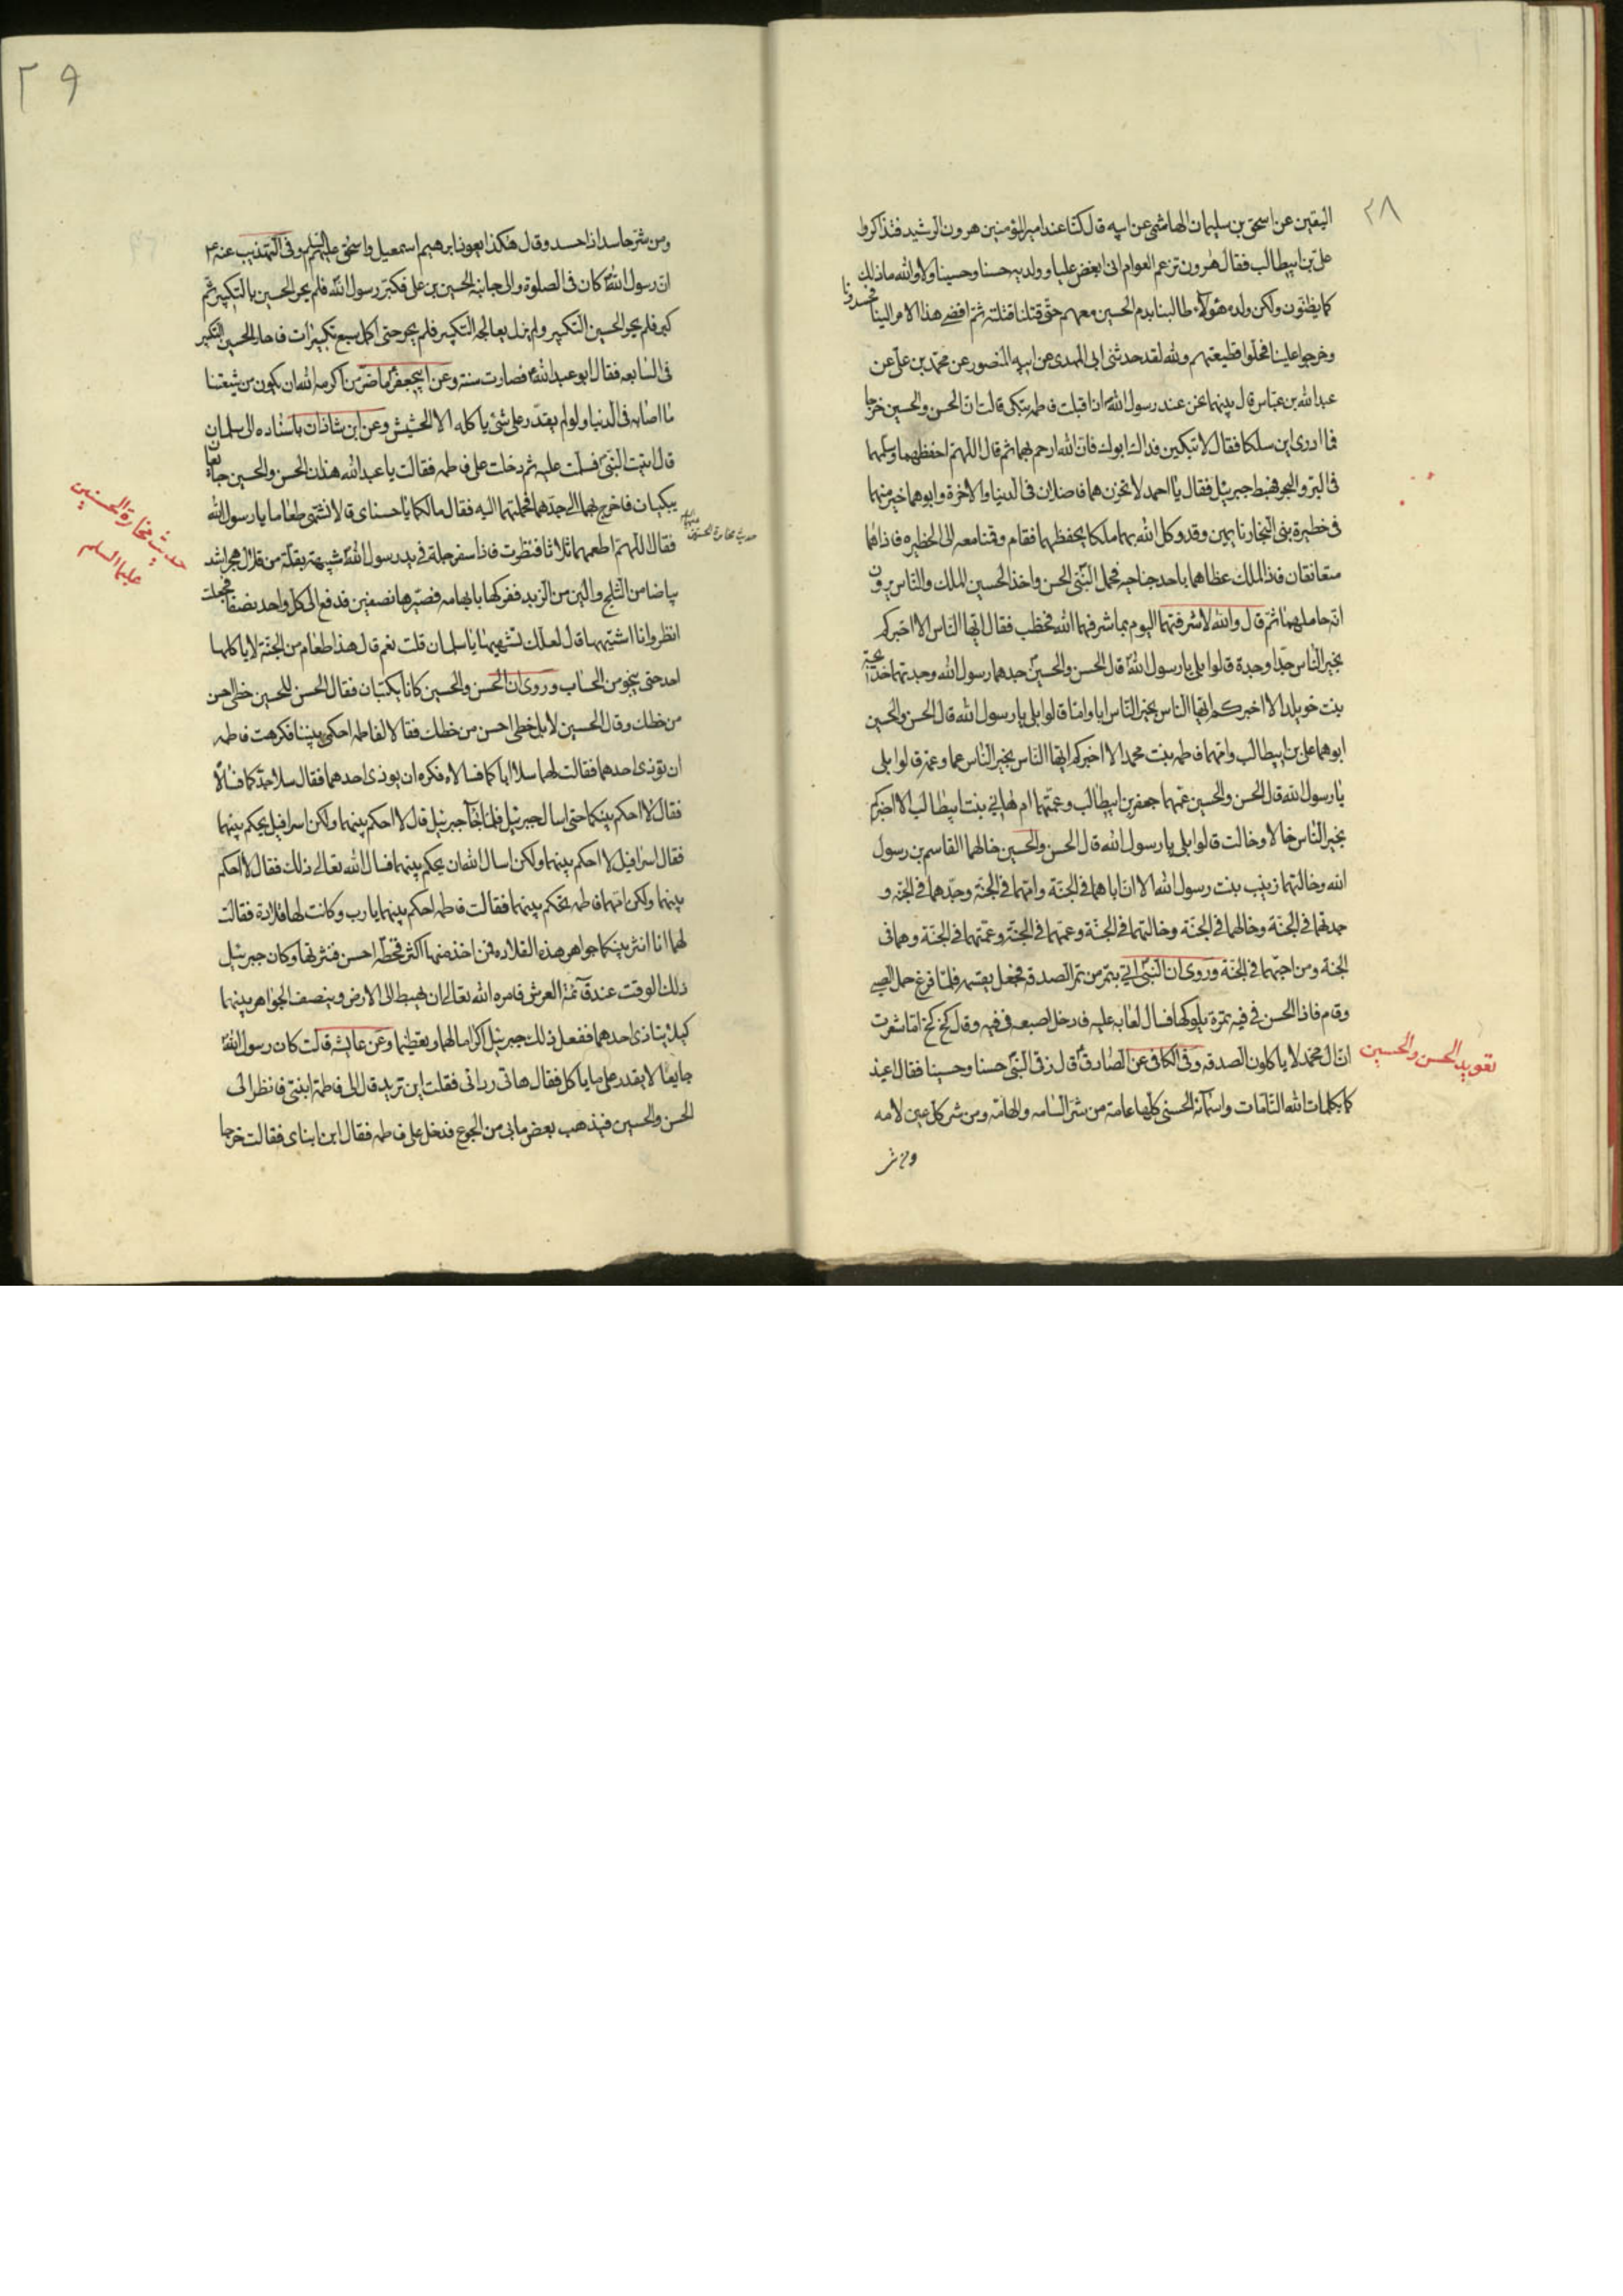 ٢٨
اليقين عن اسحق بن سليمان الهاشمى عن ابيه قال كنا عند امير المؤمنين هرون الرشيد فتذاكروا
على بن ابيطالب فقال هرون تزعم العوام انى ابغض عليا وولديه حسنا وحسينا ولا والله ما ذلك
كما يظنون ولكن ولده هؤلاء طالبنا بدم الحسين معهم حتى قتلنا قتلته ثم افضى هذا الامر الينا
فحسدونا
وخرجوا علينا فحلوا قطيعتهم والله لقد حدثنى ابى المهدى عن ابيه المنصور عن محمد بن على عن
عبدالله بن عباس قال بينما نحن عند رسول الله اذ اقبلت فاطمه تبكى قالت ان الحسن والحسين خرجا
فما ادرى اين سلكا فقال لا تبكين فداك ابوك فان الله ارحم بهما ثم قال اللهم احفظهما وسلمهما
فى البر والبحر فهبط جبرئيل فقال يا احمد لا تحزن هما فاضلان فى الدنيا والاخرة وابوهما خير منهما
فى خطيرة بنى النجار نايمين وقد وكل الله بهما ملكا يحفظهما فقام وقمنا معه الى الحظيره فاذا هما
متعانقان فاذا الملك غطاهما باحد جناحيه فحمل النبى الحسن واخذ الحسين الملك والناس يرون
انه حاملهما ثم قال والله لاشرفنهما اليوم بما شرفهما الله فخطب فقال ايها الناس الا اخبركم
بخير الناس جدا وجدة قالوا بلى يا رسول الله قال الحسن والحسين جدهما رسول الله وجدتهما خديجة
بنت خويلد الا اخبركم ايها الناس بخير الناس ابا واما قالوا بلى يا رسول الله قال الحسن والحسين
ابوهما على بن ابيطالب وامهما فاطمه بنت محمد الا اخبركم ايها الناس بخير الناس عما وعمة قالوا بلى
يا رسول الله قال الحسن والحسين عمهما جعفر بن ابيطالب وعمتهما ام هانى بنت ابيطالب الا اخبركم
بخير الناس خالا وخالة قالوا بلى يا رسول الله قال الحسن والحسين خالهما القاسم بن رسول
الله وخالتهما زينب بنت رسول الله الا ان اباهما فى الجنة وامهما فى الجنة وجدهما فى الجنه و
جدتهما فى الجنة وخالهما فى الجنة وخالتهما فى الجنة وعمهما فى الجنة وعمتهما فى الجنة وهما فى
الجنة ومن احبهما فى الجنة وروى ان النبى اتى بتمر من تمر الصدقه فجعل يقسمه فلما فرغ حمل الصبى
وقام فاذا الحسن فى فيه تمرة يلوكها فسال لعابه عليه فادخل اصبعه فى فيه وقال كخ كخ اما شعرت
ان آل محمد لا ياكلون الصدقه وفى الكافى عن الصادق قال رقى النبى حسنا وحسينا فقال اعيذ
تعويد الحسن والحسين
كما بكلمات الله التامات واسمائه الحسنى كلها عامة من شر السامه والهامة ومن شر كل عين لامه
ومن شر
٢٩
ومن شر حاسد اذا حسد وقال هكذا يعوذ ابرهيم اسمعيل واسحق عليهم السلم وفى التهذيب عنه ع
ان رسول الله كان فى الصلوة والى جانبه الحسين بن على فكبر رسول الله فلم يحر الحسين بالتكبير ثم
كبر فلم يحر الحسين التكبير ولم يزل يعالجه التكبير فلم يحر حتى اكمل سبع تكبيرات فاحار الحسين التكبير
فى السابعه فقال ابو عبدالله فصارت سنة وعن ابيجعفر ما ضر من اكرمه الله ان يكون من شيعتنا
ما اصابه فى الدنيا ولو لم يقدر على شئ ياكله الا الحشيش وعن ابن شاذان باسناده الى سلمان
قال اتيت النبى فسلمت عليه ثم دخلت على فاطمه فقالت يا عبدالله هذان الحسن والحسين جايعان
يبكيان فاخرج بهما الى جدهما فحملتهما اليه فقال مالكما يا حسناى قالا نشتهى طعاما يا رسول الله
حديث مخارة الحسنين عليهما السلم
فقال اللهم اطعمهما ثلاثا فنظرت فاذا سفرجلة فى يد رسول الله شبيهة بقلة من قلال هجر اشد
بياضا من الثلج والين من الزبد ففركها بابهامه فصيرها نصفين فدفع الى كل واحد نصفا فجعلت
انظر وانا اشتهيها قال لعلك تشتهيها يا سلمان قلت نعم قال هذا طعام من الجنة لا ياكلها
احد حتى ينجو من الحساب وروى ان الحسن والحسين كانا يكتبان فقال الحسن للحسين خطى احسن
من خطك وقال الحسين لا بل خطى احسن من خطك فقالا لفاطمه احكمى بيننا فكرهت فاطمه
ان توذى احدهما فقالت لهما سلا اباكما فسالاه فكره ان يوذى احدهما فقال سلا جدكما فسالاه
فقال لا احكم بينكما حتى اسال جبرئيل فلما جآء جبرئيل قال لا احكم بينهما ولكن اسرافيل يحكم بينهما
فقال اسرافيل لا احكم بينهما ولكن اسال الله ان يحكم بينهما فسال الله تعالى ذلك فقال لا احكم
بينهما ولكن امهما فاطمه تحكم بينهما فقالت فاطمه احكم بينهما يا رب وكانت لها قلادة فقالت
لهما انا انثر بينكما جواهر هذه القلاده فمن اخذ منها اكثر فخطه احسن فنثرتها وكان جبرئيل
ذلك الوقت عند قآئمة العرش فامره الله تعالى ان يهبط الى الارض وينصف الجواهر بينهما
كيلا يتاذى احدهما ففعل ذلك جبرئيل اكراما لهما وتعظيما وعن عايشه قالت كان رسول الله
جايعا لا يقدر على ما ياكل فقال هاتى ردائى فقلت اين تريد قال الى فاطمة ابنتى فانظر الى
الحسن والحسين فيذهب بعض ما بى من الجوع فدخل على فاطمه فقال اين ابناى فقالت خرجا